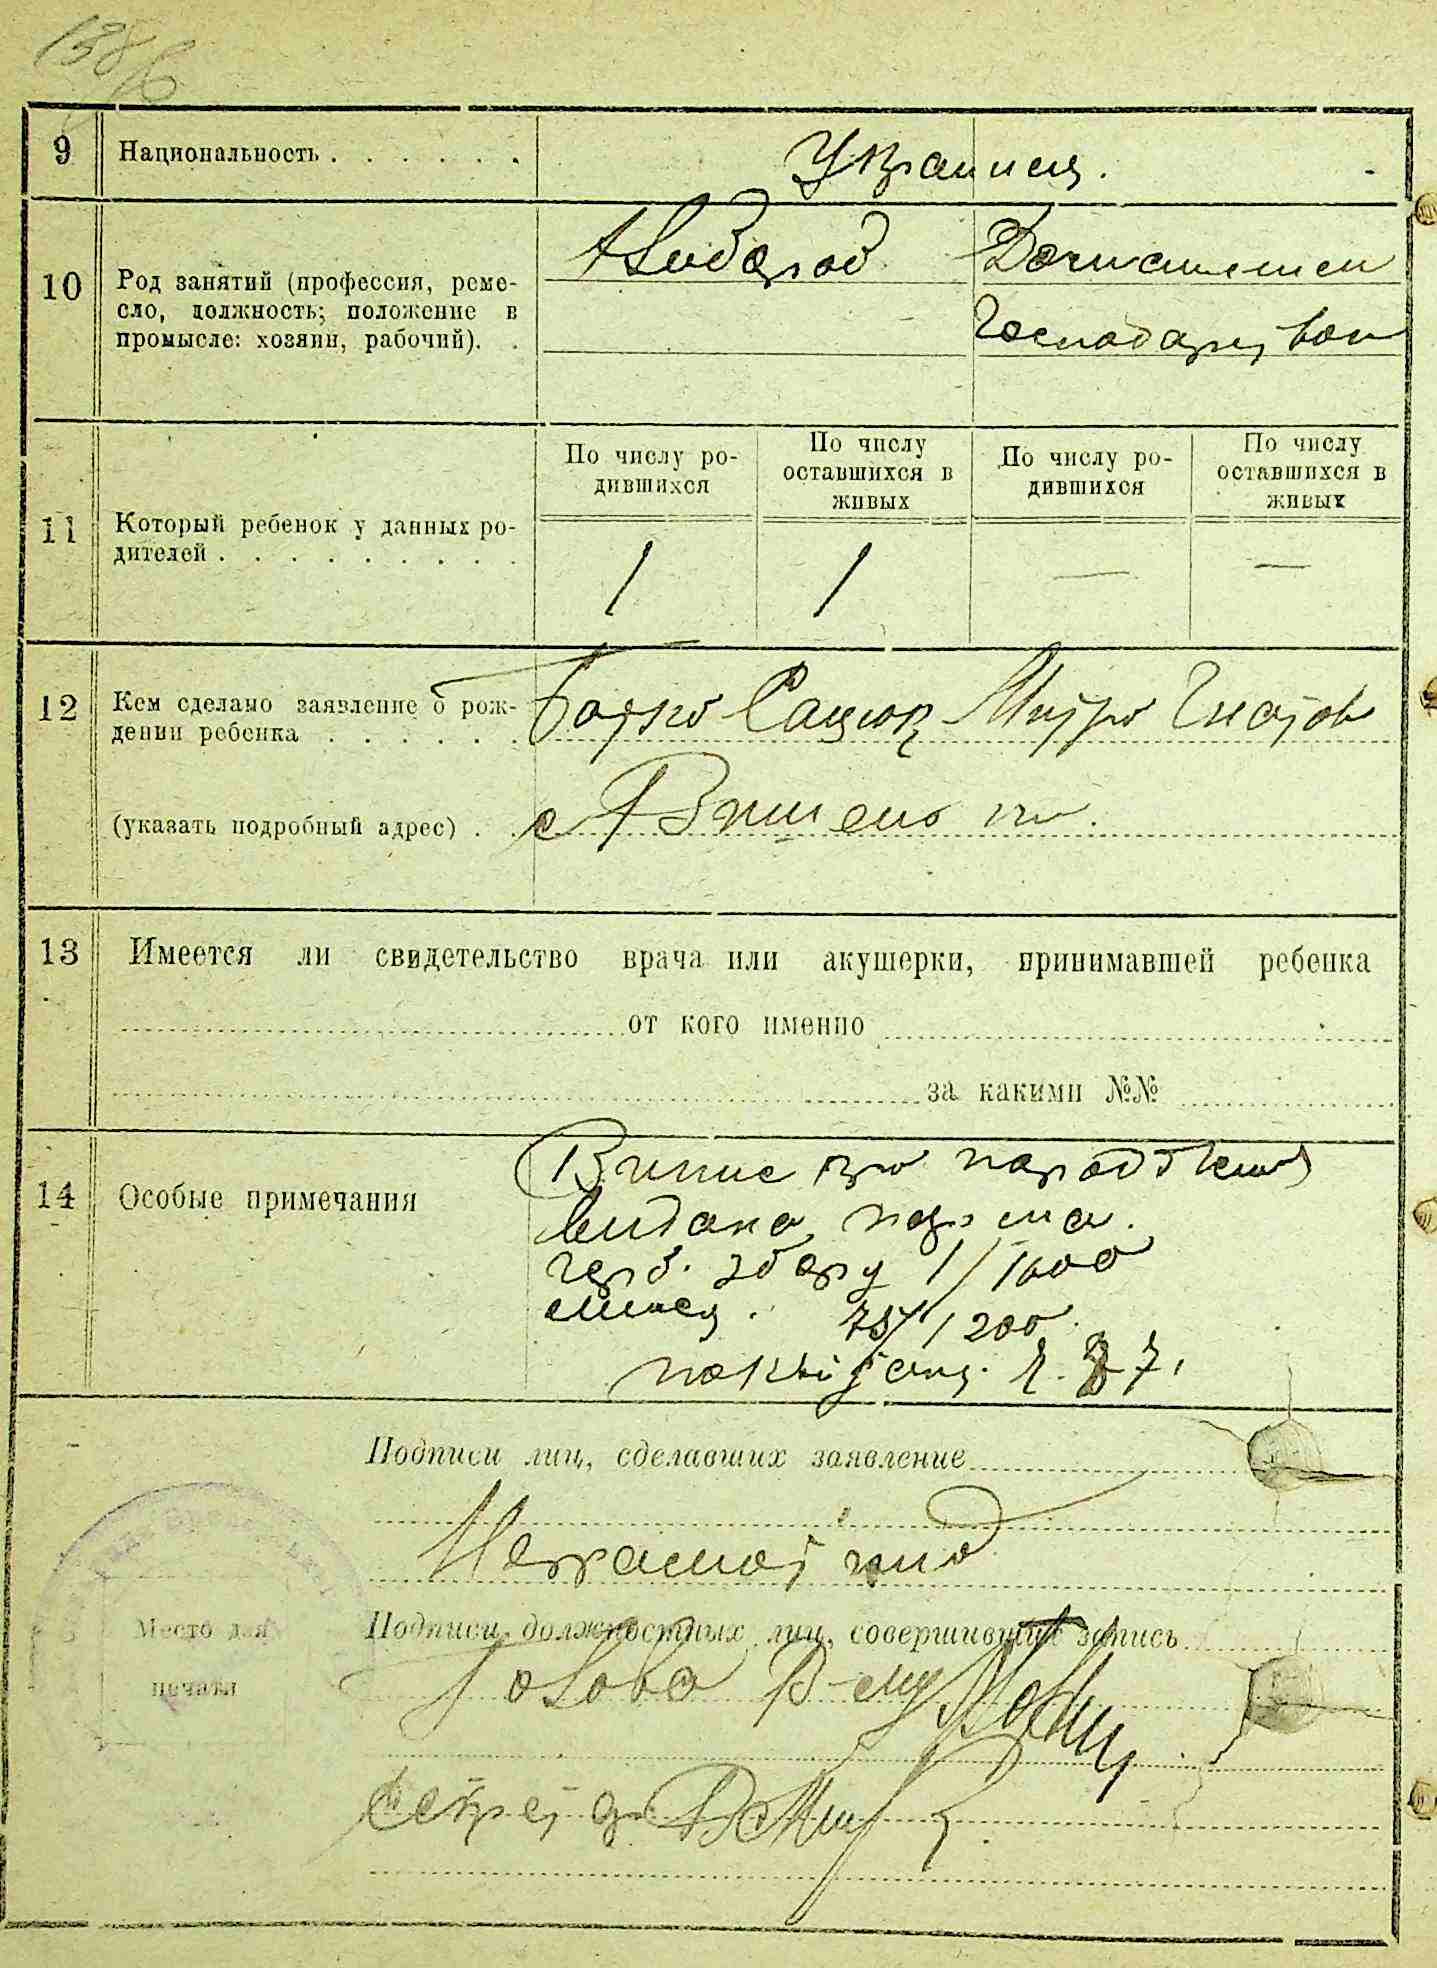 9 Национальность . . . . . .
Украинец.
10 Род занятий (профессия, реме-
сло, должность; положение в
промысле: хозяин, рабочий). .
Хлібороб Домашнем
Господарством
11 Который ребенок у данных ро-
дителей . . . . . . . . .
По числу ро-
дившихся
По числу
оставшихся в
живых
По числу ро-
дившихся
По числу
оставшихся в
живых
1 1 — —
12 Кем сделано заявление о рож-
дении ребенка . . . . . .
Батько Сацюк Митро Гнатов
(указать подробный адрес) . .
с
13 Имеется ли свидетельство врача или акушерки, принимавшей ребенка
от кого именно
за какими №№
14 Особые примечания
Випис про народження
видано
герб. збору 1/1600
75/1200
Подписи лиц, сделавших заявление
Неграмотний
Подписи должностных лиц, совершивших запись
Голова
Место для
печати
Секретар